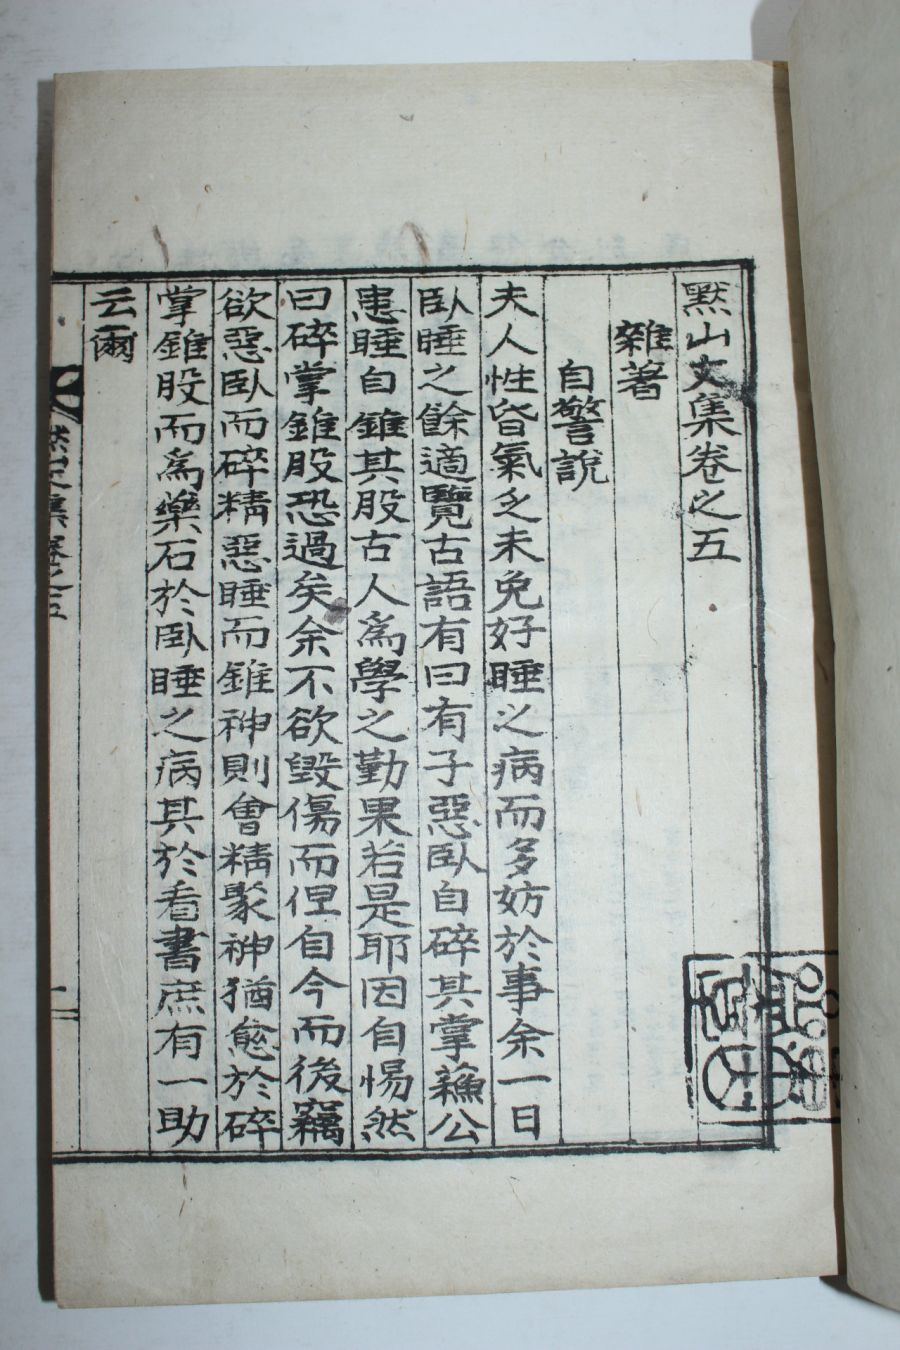 默山文集卷之五
雜著
自警說
夫人性昏氣乏未免好睡之病而多妨於事余一日
臥睡之餘適覽古語有曰有子惡臥自碎其掌蘓公
患睡自錐其股古人爲學之勤果若是耶因自惕然
曰碎掌錐股恐過矣余不欲毀傷而但自今而後竊
欲惡臥而碎精惡睡而錐神則會精聚神猶愈於碎
掌錐股而爲藥石於臥睡之病其於看書庶有一助
云爾